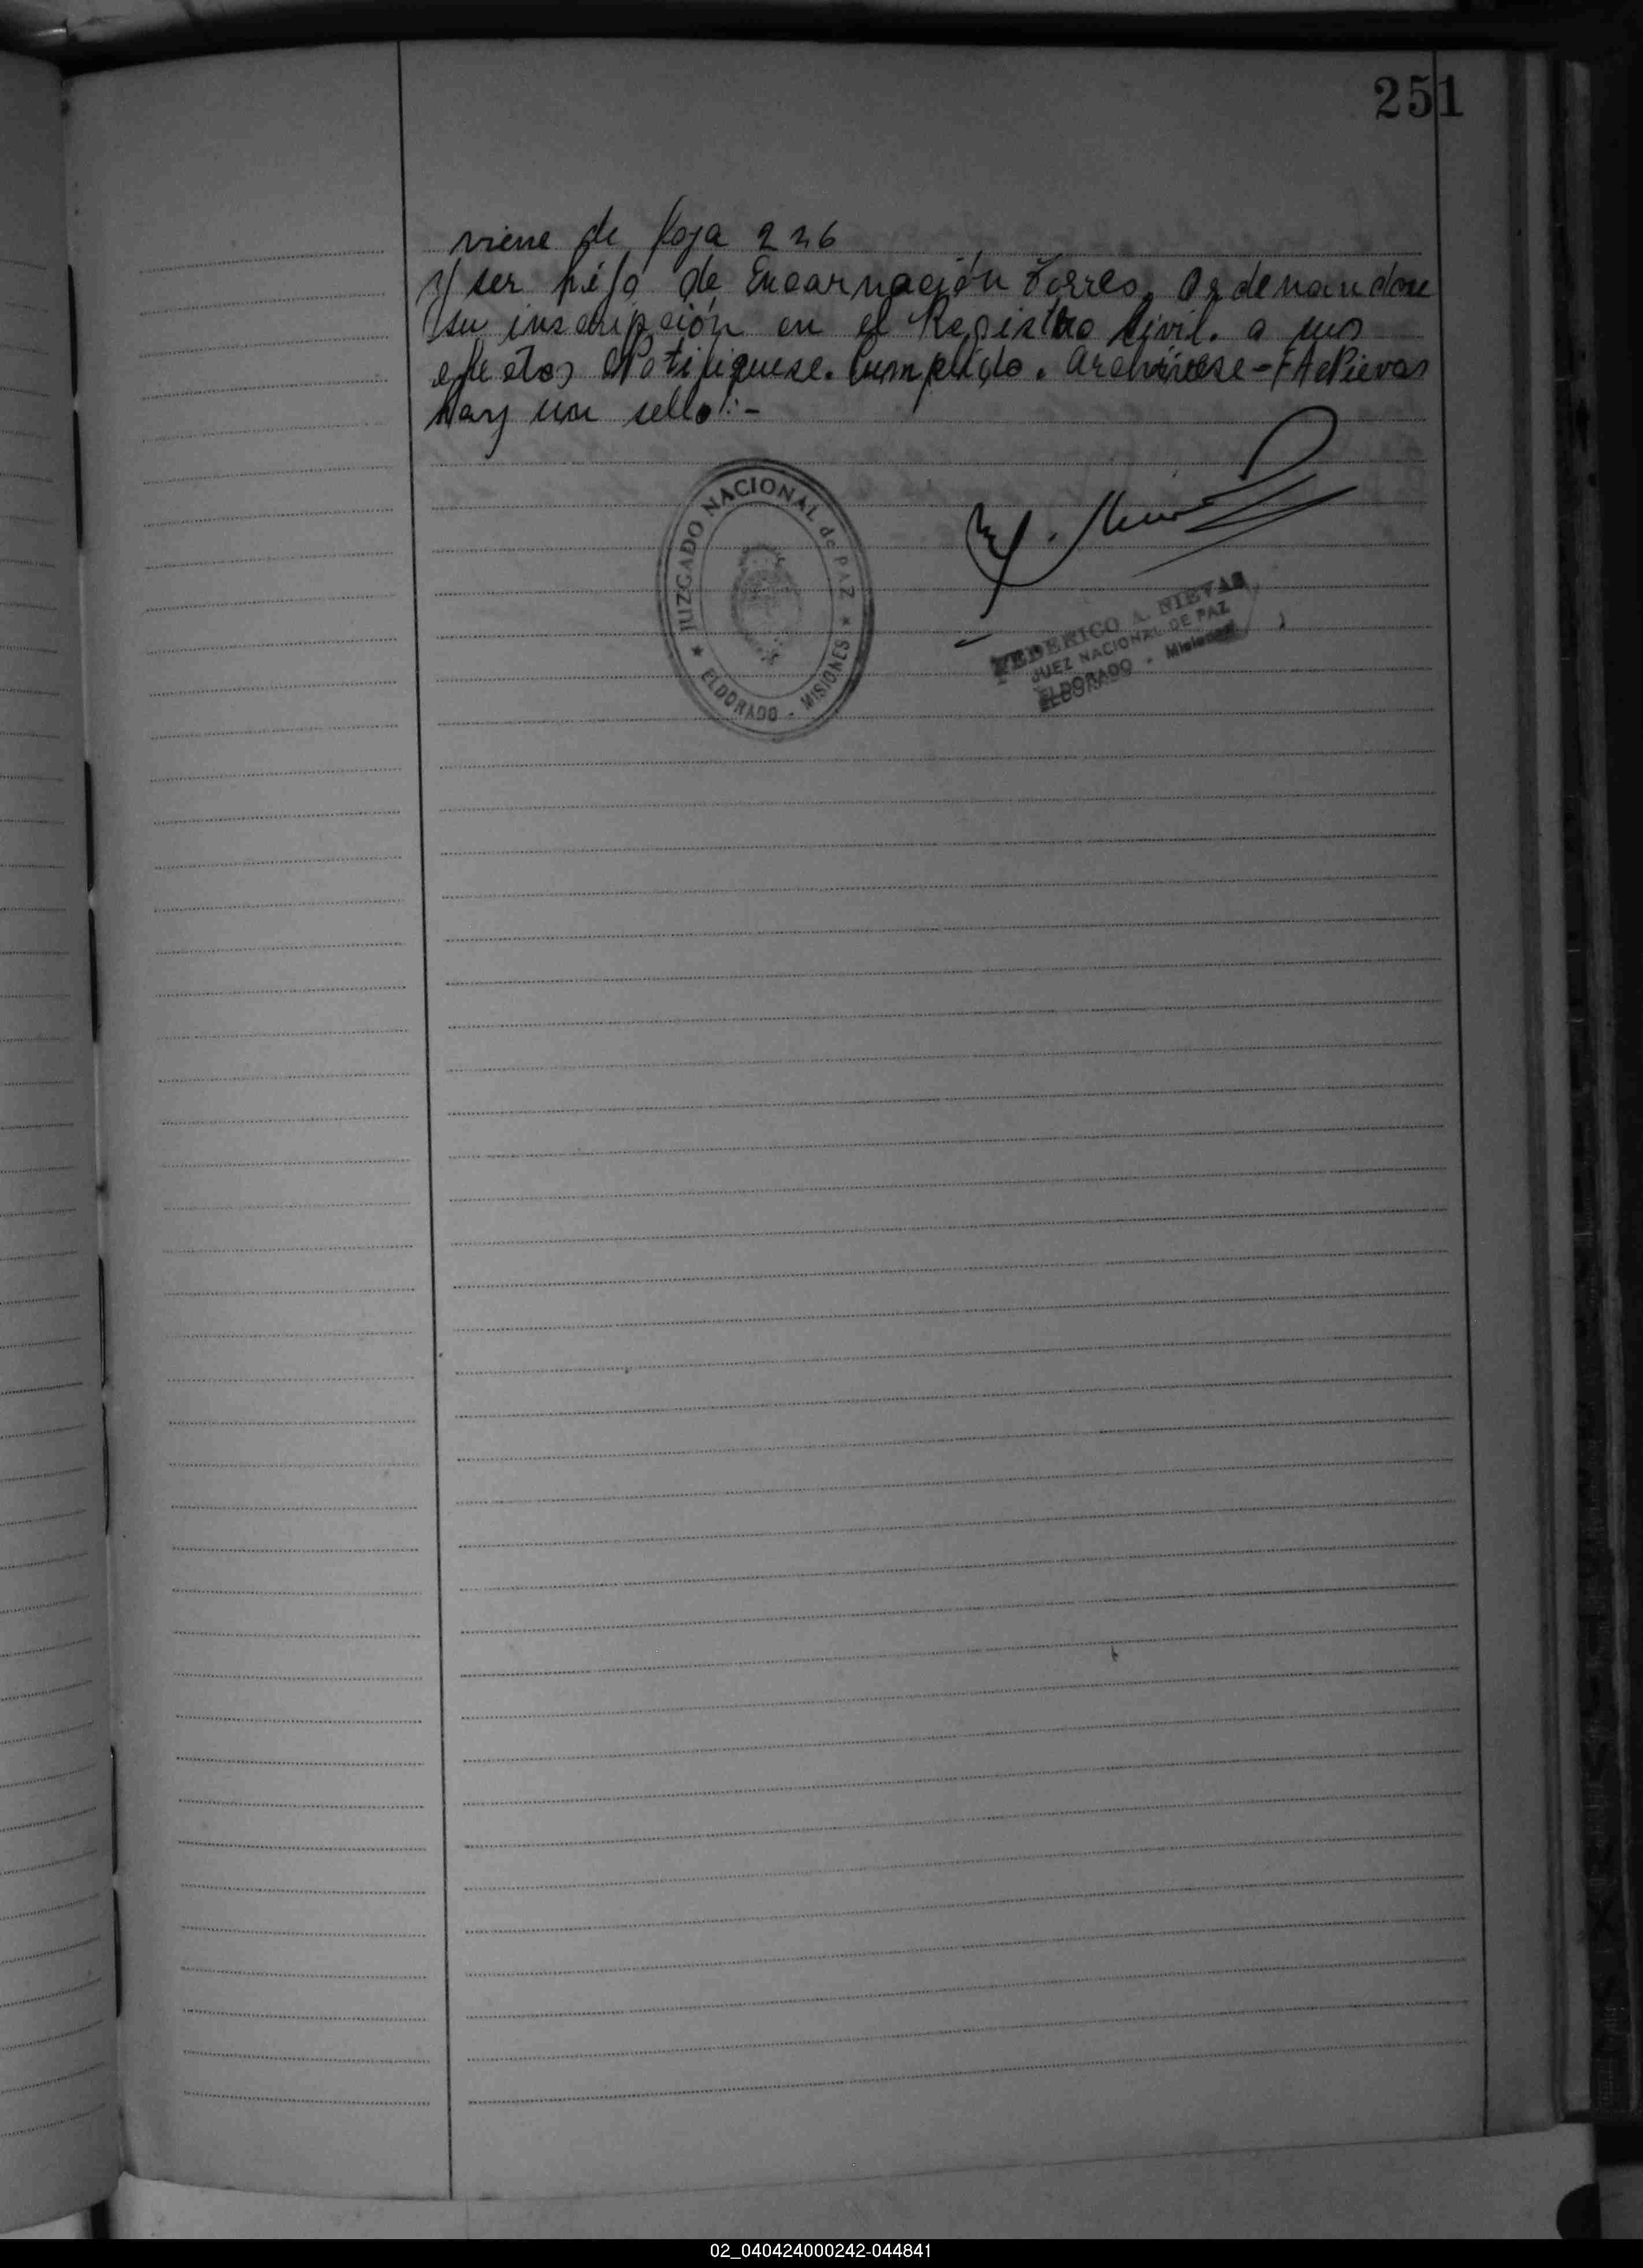 251
viene de foja 246
y ser hijo de Encarnación Torres, Ordenandose
su inscripción en el Registro Civil. a sus
efectos Notifiquese. Cumplido. Archívese - FANievas
hay un sello: -
JUZGADO NACIONAL de PAZ
★ ELDORADO - MISIONES ★
FEDERICO A. NIEVAS
JUEZ NACIONAL DE PAZ
ELDORADO - Misiones
02_040424000242-044841